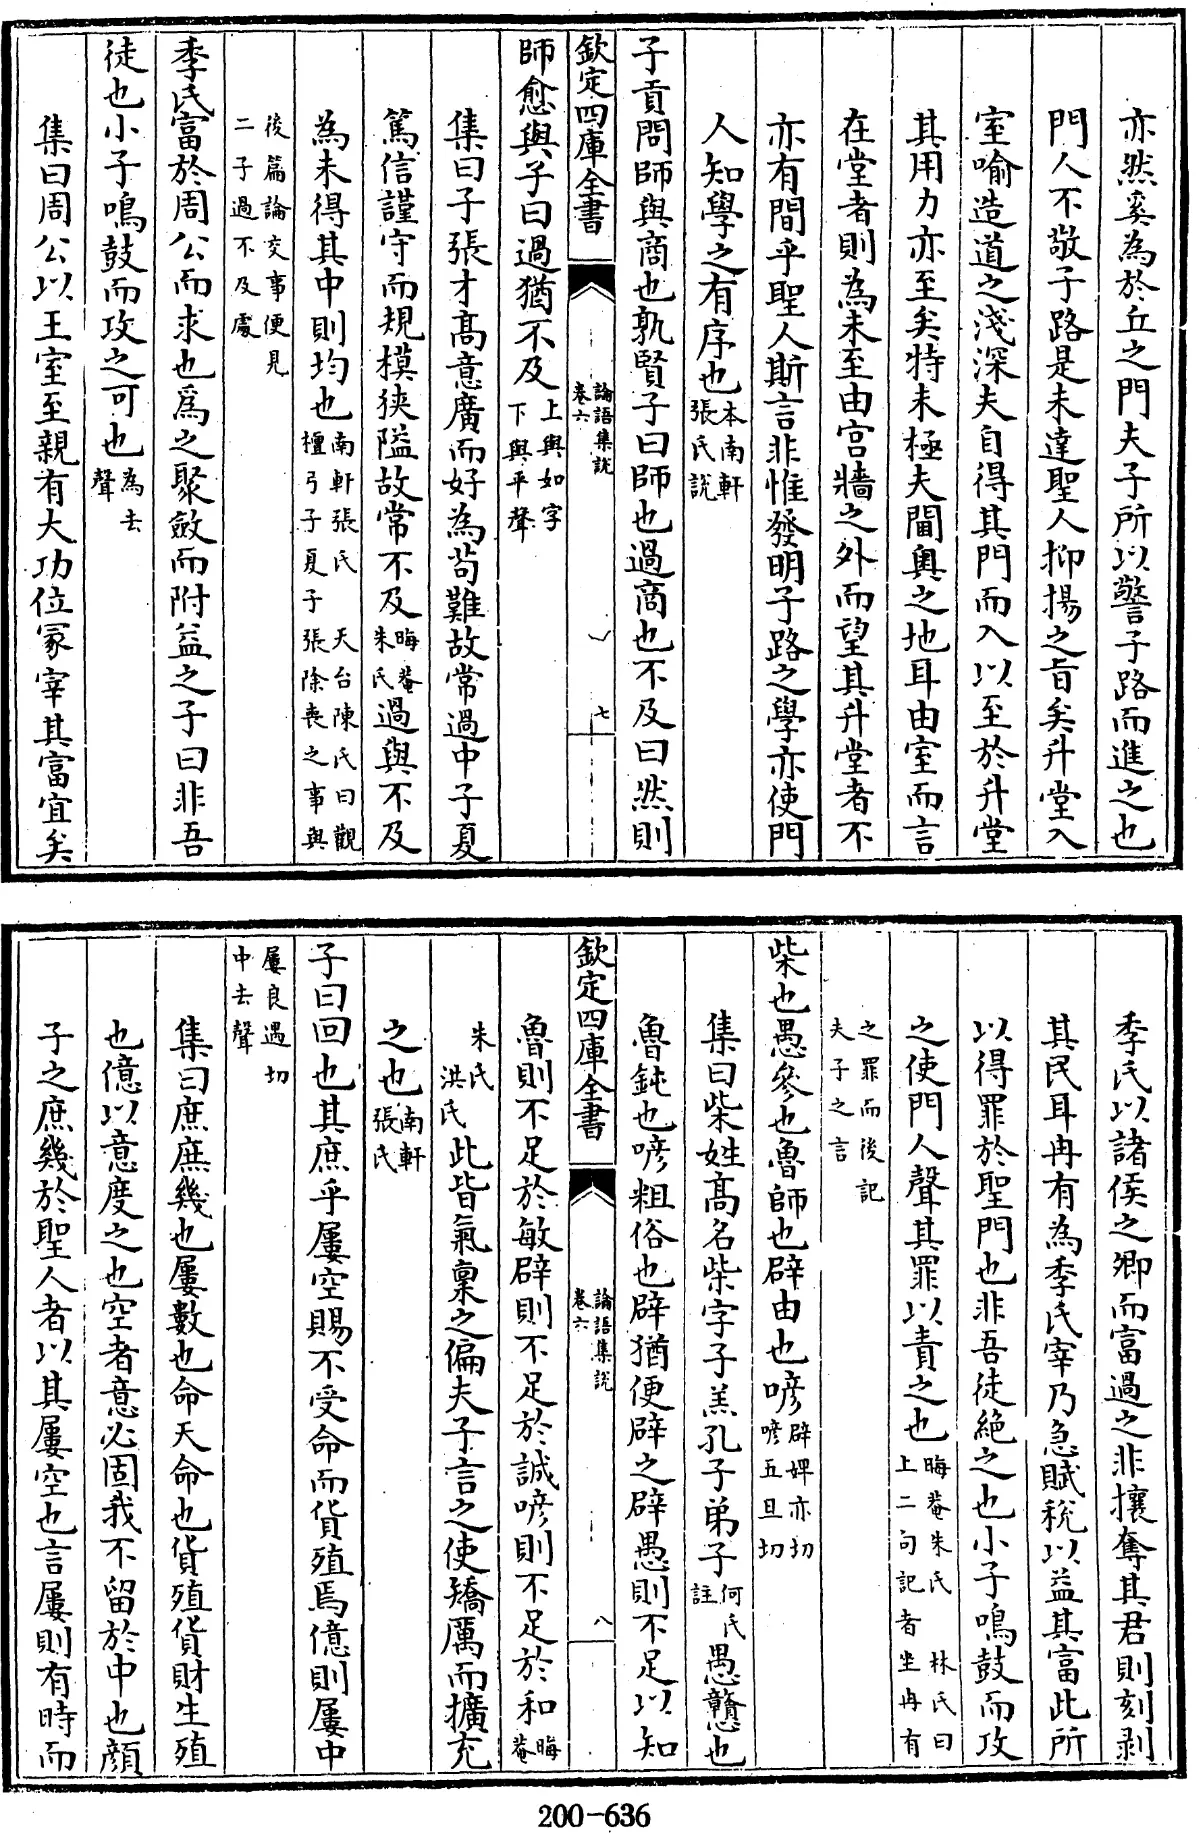 亦然奚為於丘之門夫子所以警子路而進之也
門人不敬子路是未達聖人抑揚之旨矣升堂入
室喻造道之淺深夫自得其門而入以至於升堂
其用力亦至矣特未極夫閫奧之地耳由室而言
在堂者則為未至由宫牆之外而望其升堂者不
亦有間乎聖人斯言非惟發明子路之學亦使門
人知學之有序也本南軒張氏說
子貢問師與商也孰賢子曰師也過商也不及曰然則
欽定四庫全書 論語集說卷六 七
師愈與子曰過猶不及上與如字下與平聲
集曰子張才高意廣而好為茍難故常過中子夏
篤信謹守而規模狹隘故常不及晦菴朱氏過與不及
為未得其中則均也南軒張氏 天台陳氏曰觀檀弓子夏子張除喪之事與
後篇論交事便見二子過不及處
季氏富於周公而求也為之聚斂而附益之子曰非吾
徒也小子鳴鼓而攻之可也為去聲
集曰周公以王室至親有大功位冢宰其富宜矣
季氏以諸侯之卿而富過之非攘奪其君則刻剥
其民耳冉有為季氏宰乃急賦稅以益其富此所
以得罪於聖門也非吾徒絶之也小子鳴鼓而攻
之使門人聲其罪以責之也晦菴朱氏 林氏曰上二句記者坐冉有
之罪而後記夫子之言
柴也愚參也魯師也辟由也喭辟婢亦切喭五旦切
集曰柴姓高名柴字子羔孔子弟子何氏註愚戇也
魯鈍也喭粗俗也辟猶便辟之辟愚則不足以知
欽定四庫全書 論語集說卷六 八
魯則不足於敏辟則不足於誠喭則不足於和晦菴
朱氏洪氏此皆氣稟之偏夫子言之使矯厲而擴充
之也南軒張氏
子曰回也其庶乎屢空賜不受命而貨殖焉億則屢中
屢良遇切中去聲
集曰庶庶幾也屢數也命天命也貨殖貨財生殖
也億以意度之也空者意必固我不留於中也顔
子之庶幾於聖人者以其屢空也言屢則有時而
200-636